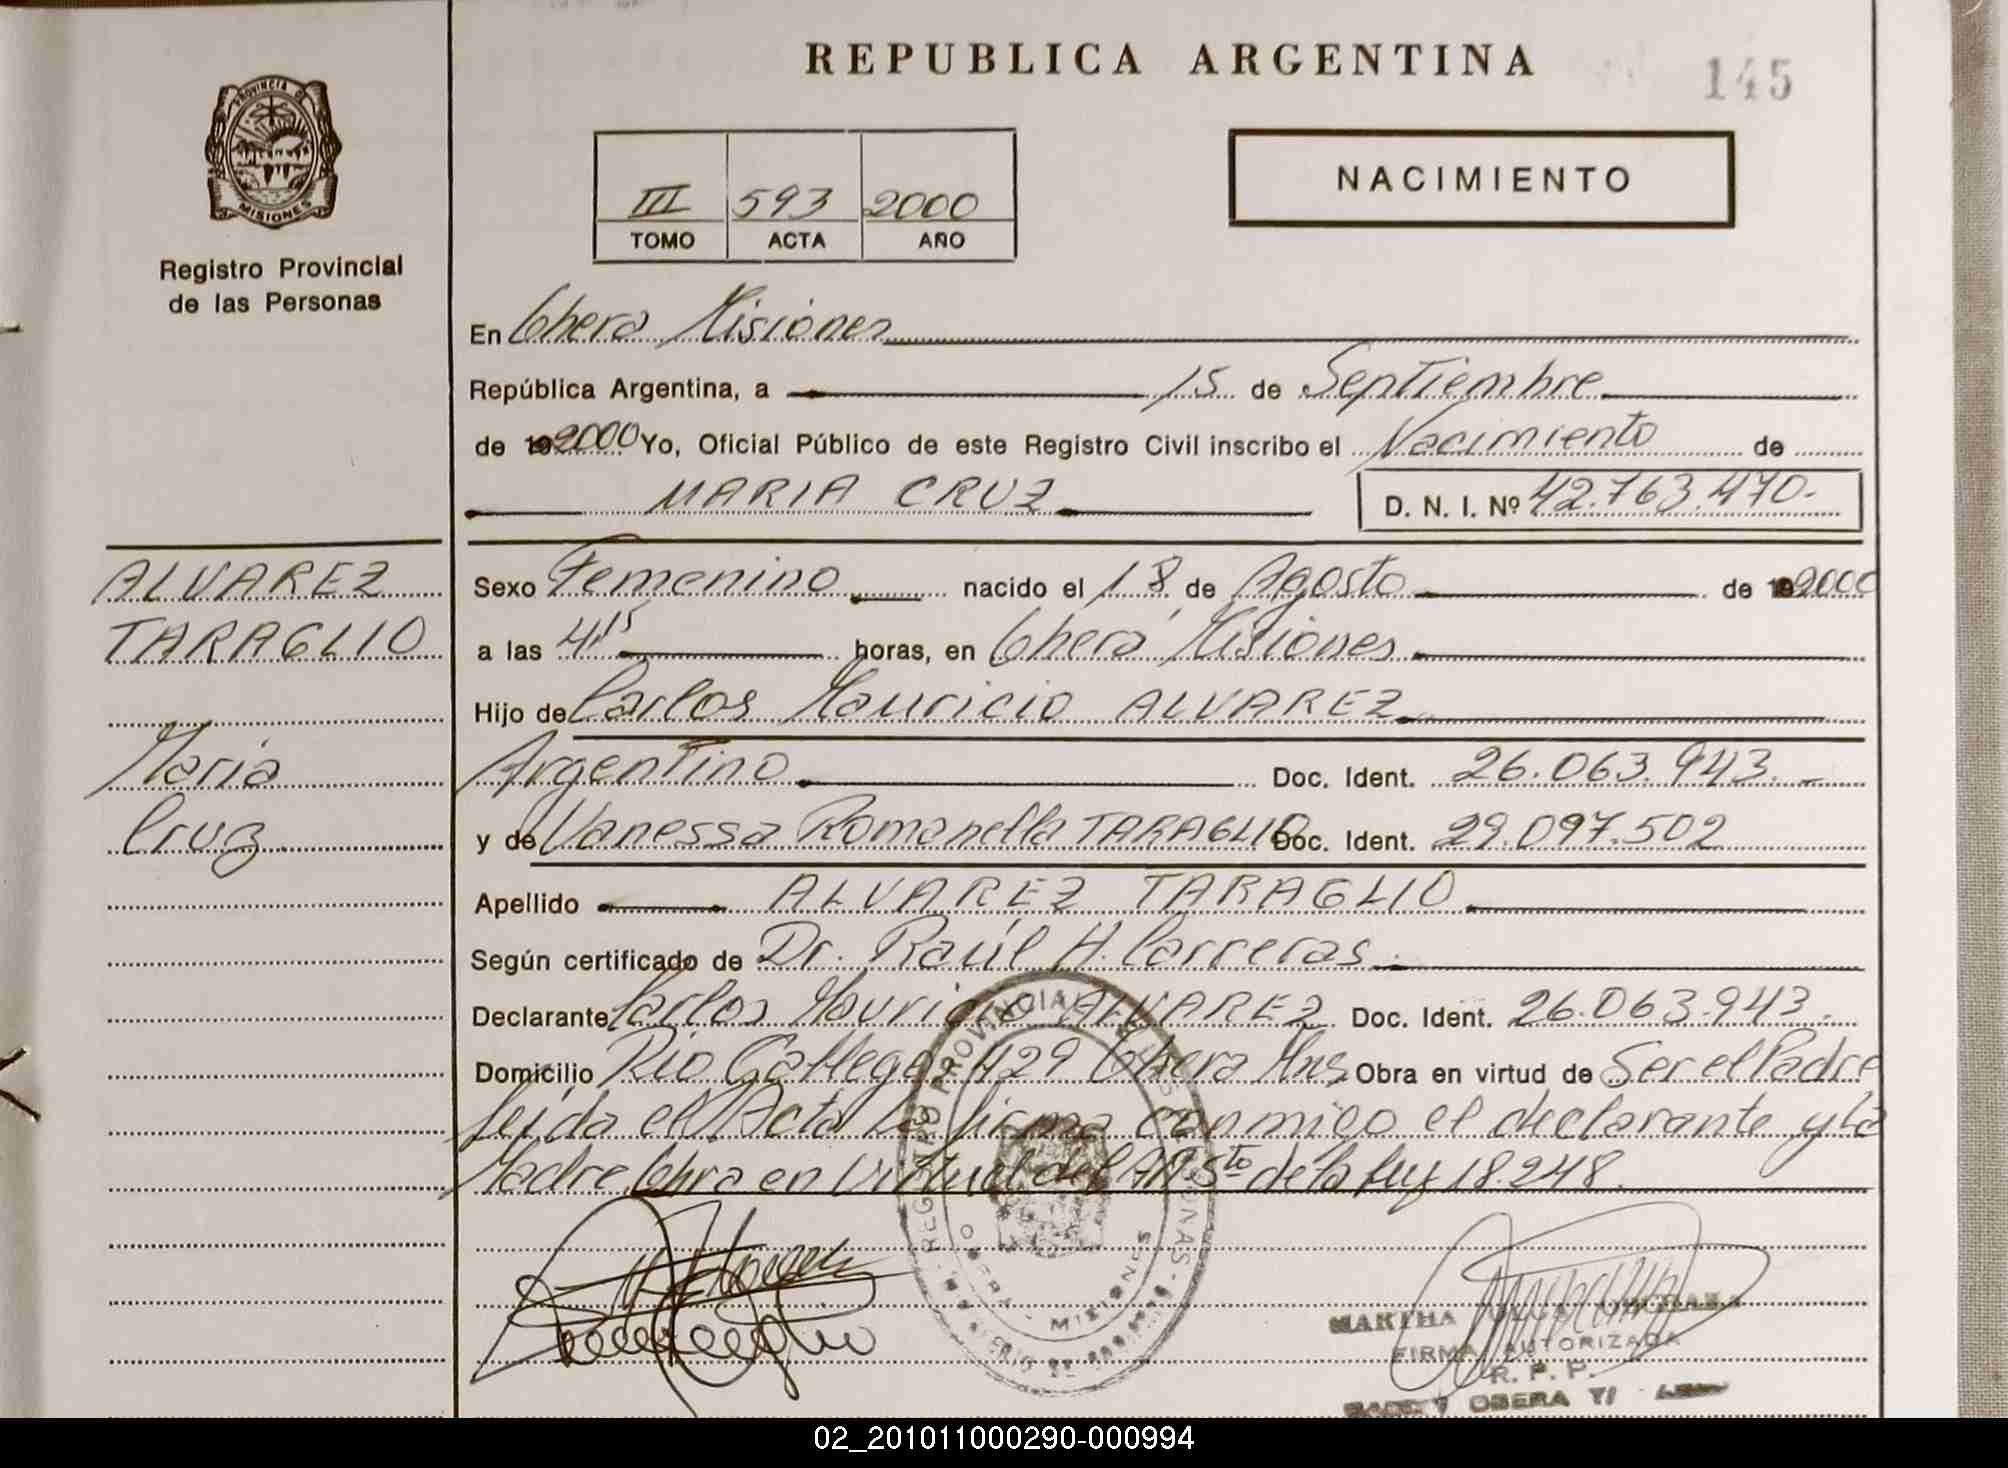 REPUBLICA ARGENTINA
145
PROVINCIA DE
MISIONES
Registro Provincial
de las Personas
NACIMIENTO
III 593 2000
TOMO ACTA AÑO
En Obera Misiones
República Argentina, a 15 de Septiembre
de 19 2000 Yo, Oficial Público de este Registro Civil inscribo el Nacimiento de
MARIA CRUZ D. N. I. Nº 42.763.470.-
ALVAREZ
TARAGLIO
Maria
Cruz
Sexo Femenino nacido el 18 de Agosto de 19 2000
a las 4,15 horas, en Obera Misiones
Hijo de Carlos Mauricio ALVAREZ
Argentino Doc. Ident. 26.063.943.-
y de Vanessa Romanella TARAGLIO Doc. Ident. 29.097.502
Apellido ALVAREZ TARAGLIO
Según certificado de Dr. Raúl H. Carreras
Declarante Carlos Mauricio ALVAREZ Doc. Ident. 26.063.943.
Domicilio Rio Gallego 429 Obera Mns Obra en virtud de Ser el Padre
leída el Acta la firma conmigo el declarante y la
Madre Obra en Virtud del Art 5to de la ley 18.248.
REGISTRO PROVINCIAL DE LAS PERSONAS
OBERA - MISIONES
MARTHA
FIRMA AUTORIZADA
R. P. P.
OBERA
02_201011000290-000994